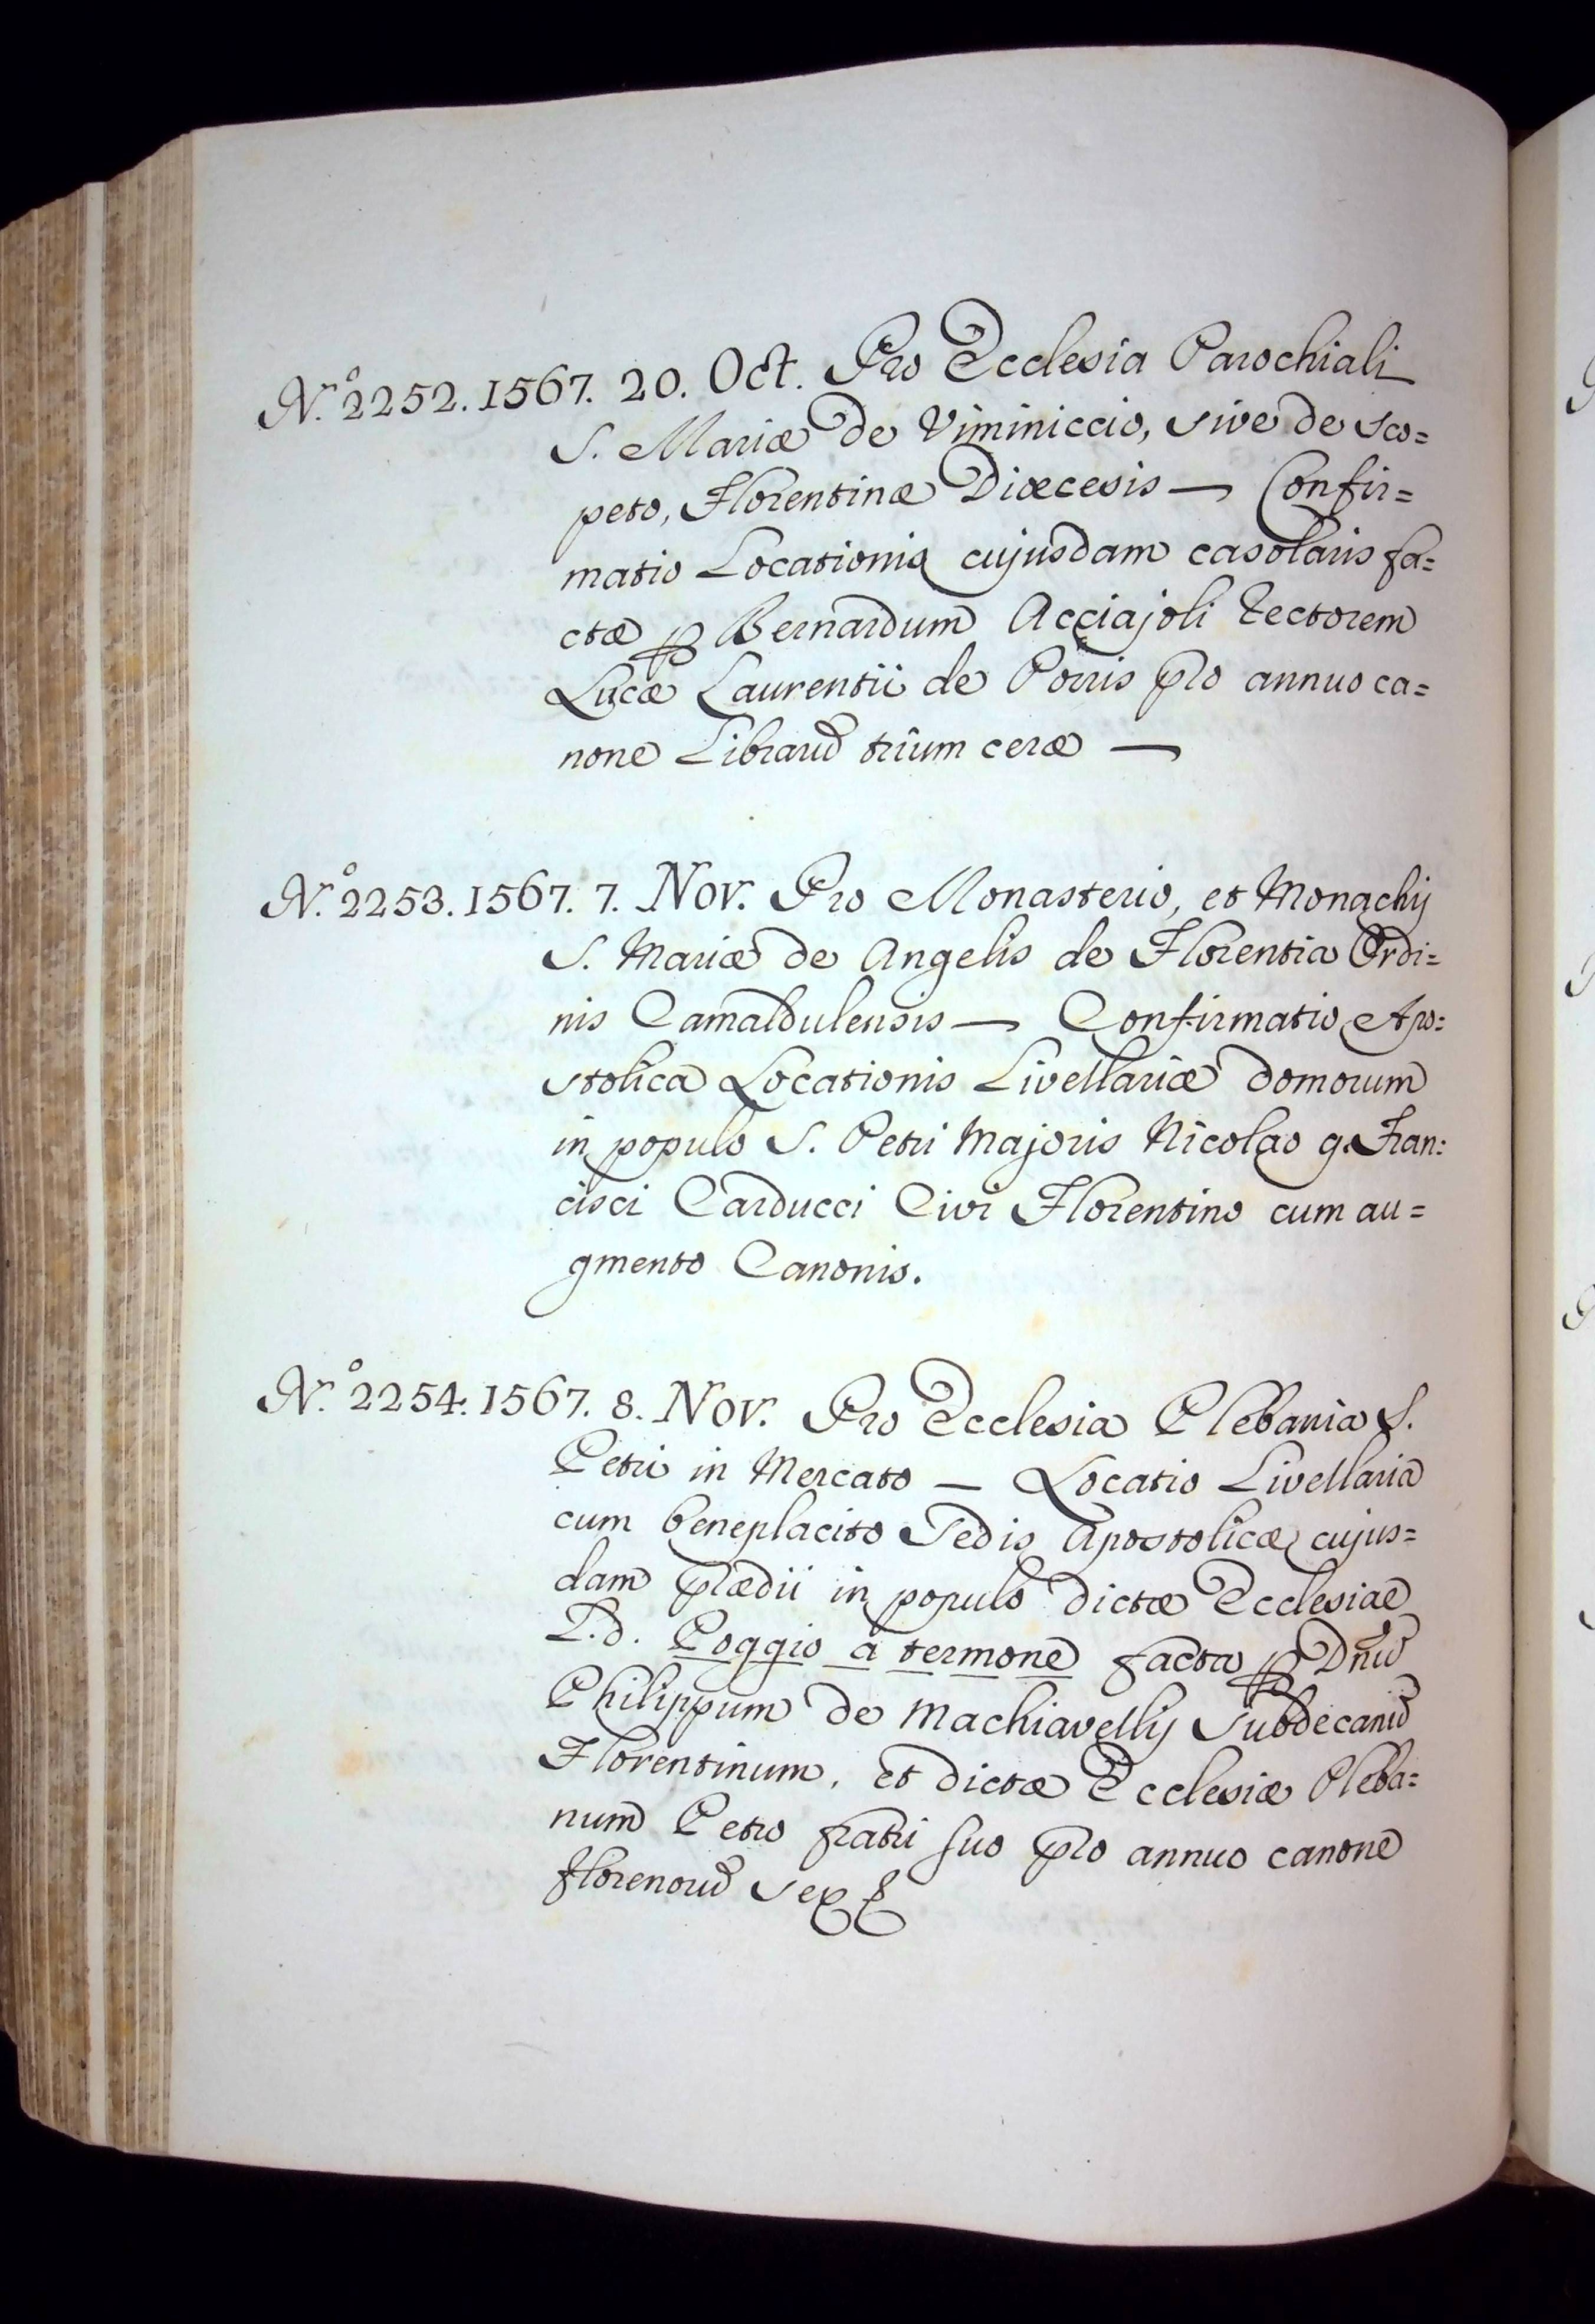 N.º 2252. 1567. 20. Oct. Pro Ecclesia Parochiali
S. Mariæ de Viminiccio, sive de Sco=
peto, Florentinæ Diœcesis — Confir=
matio Locationis cujusdam casolaris fa=
ctæ ꝑ Bernardum Acciajoli Rectorem
Lucæ Laurentii de Porris pro annuo ca=
none Libraru̅ trium ceræ —
N.º 2253. 1567. 7. Nov. Pro Monasterio, et Monachij
S. Mariæ de Angelis de Florentia Ordi=
nis Camaldulensis — Confirmatio Apo=
stolica Locationis Livellariæ domorum
in populo S. Petri Majoris Nicolao q. Fran=
cisci Carducci Civi Florentino cum au=
gmento Canonis.
N.º 2254. 1567. 8. Nov. Pro Ecclesia Plebania S.
Petri in Mercato — Locatio Livellaria
cum beneplacito Sedis Apostolicæ cujus=
dam prædii in populo dictæ Ecclesiae
L.d. Poggio a termone facta ꝑ Dnu̅
Philippum de Machiavellij Subdecanu̅
Florentinum, et dictæ Ecclesiæ Pleba=
num Petro fratri suo pro annuo canone
florenoru̅ sex